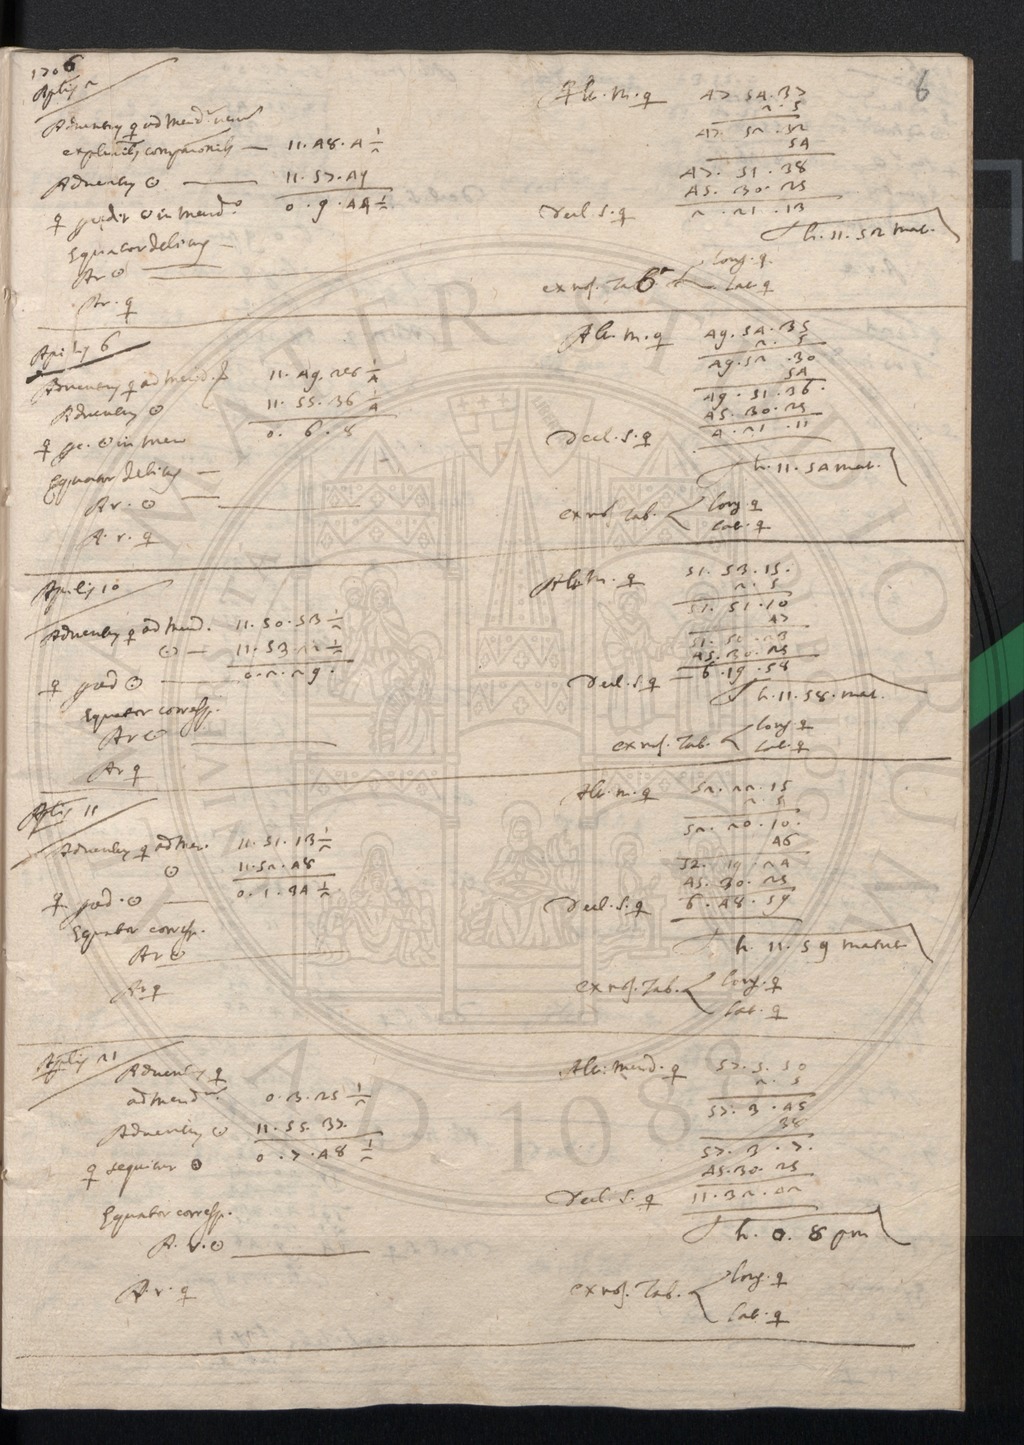 1706
6
Aplis 2
Adventus ♀ ad Merid.
explicitis
11. 48. 4 1/2
Adventus ☉ — 11. 57. 49
♀ praedit ☉ in Merid.º 0. 9. 44 1/2
Equator
Ar ☉
Ar. ♀
Alt. m. ♀ 47. 54. 37
2. 5
47. 52. 32
54
47. 51. 38
45. 30. 25
Decl. S. ♀ 2. 21. 13
h. 11. 52 mat.
ex nos. Tab.
Long. ♀
Lat. ♀
Aprilis 6
Adventus ♀ ad Merid. 11. 49. 28 1/4
Adventus ☉ 11. 55. 36 1/4
♀ pr. ☉ in Mer 0. 6. 8
Equator
Ar. ☉
A. r. ♀
Alt. m. ♀ 49. 54. 35
2. 5
49. 52. 30
54
49. 51. 36.
45. 30. 25
Decl. S. ♀ 4. 21. 11
h. 11. 54 mat.
ex nos. Tab.
Long. ♀
Lat. ♀
Aprilis 10
Adventus ♀ ad Merid. 11. 50. 53 1/2
☉ — 11. 53. 22 1/2
♀ praed ☉ — 0. 2. 29.
Equator corresp.
Ar ☉
Ar ♀
Alt. M. ♀ 51. 53. 15.
2. 5
51. 51. 10
47
51. 50. 23
45. 30. 25
Decl. S. ♀ 6. 19. 58
h. 11. 58. mat.
ex nos. Tab.
Long. ♀
Lat. ♀
Aplis 11
Adventus ♀ ad Mer. 11. 51. 13 1/2
☉ 11. 52. 48
♀ praed. ☉ — 0. 1. 34 1/2
Equator corresp.
Ar ☉
Ar ♀
Alt. m. ♀ 52. 22. 15
2. 5
52. 20. 10.
46
52. 19. 24
45. 30. 25
Decl. S. ♀ 6. 48. 59
h. 11. 59 matut.
ex nos. Tab.
Long. ♀
Lat. ♀
Aplis 21
Adventus ♀
ad Merid. 0. 3. 25 1/2
Adventus ☉ 11. 55. 37.
♀ sequitur ☉ 0. 7. 48 1/2
Equator corresp.
A. r. ☉
Ar. ♀
Alt. Merid. ♀ 57. 5. 50
2. 5
57. 3. 45
38
57. 3. 7.
45. 30. 25
Decl. S. ♀ 11. 32. 42
h. 0. 8 pm
ex nos. Tab.
Long. ♀
Lat. ♀
ALMA MATER STUDIORUM
A.D. 1088